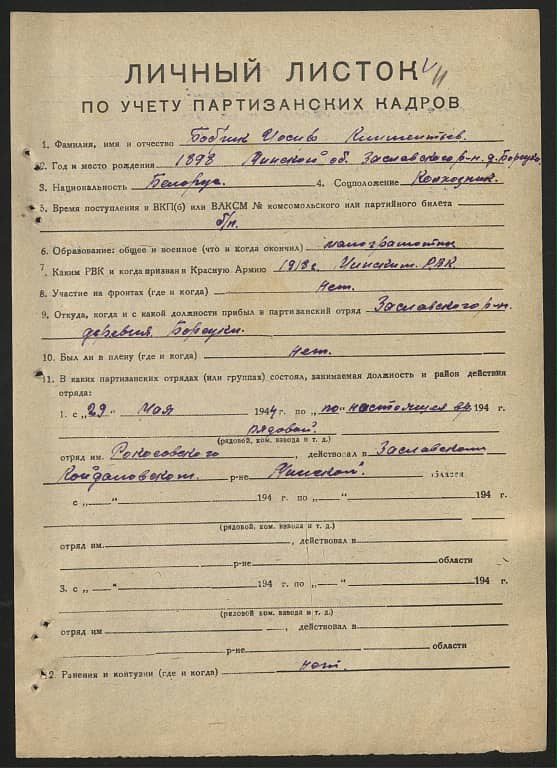 ЛИЧНЫЙ ЛИСТОК
ПО УЧЕТУ ПАРТИЗАНСКИХ КАДРОВ
1. Фамилия, имя и отчество Бобрик Иосиф Климентьев.
2. Год и место рождения 1898 Минской об. Заславского р-н. д. Борсуки
3. Национальность Белорус. 4. Соцположение Колхозник.
5. Время поступления в ВКП(б) или ВЛКСМ № комсомольского или партийного билета
б/п.
6. Образование: общее и военное (что и когда окончил) малограмотн
7. Каким РВК и когда призван в Красную Армию 1918 г. Минским. РВК.
8. Участие на фронтах (где и когда) нет.
9. Откуда, когда и с какой должности прибыл в партизанский отряд Заславского р-н.
деревня Борсуки.
10. Был ли в плену (где и когда) нет.
11. В каких партизанских отрядах (или группах) состоял, занимаемая должность и район действия
отряда:
1. с „29" Мая 1944 г. по „по" настоящея вр. 194 г.
рядовой.
(рядовой, ком. взвода и т. д.)
отряд им. Рокосовского, действовал в Заславском
Койдановском. р-не Минской. области
с „ " 194 г. по „ " 194 г.
(рядовой, ком. взвода и т. д.)
отряд им. , действовал в
р-не области
3. с „ " 194 г. по „ " 194 г.
(рядовой ком. взвода и т. д.)
отряд им , действовал в
р-не области
12. Ранения и контузии (где и когда) нет.